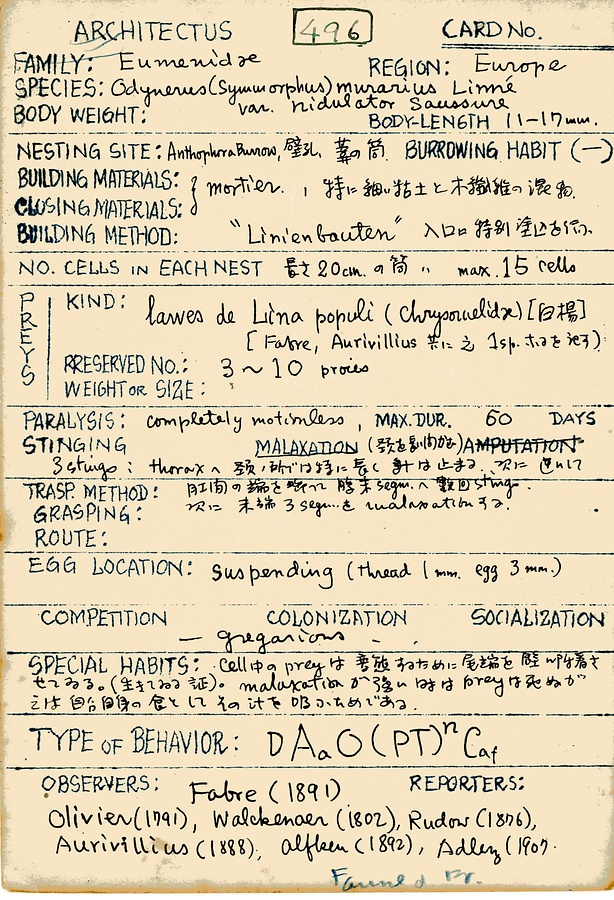 ARCHITECTUS 496 CARD No.
FAMILY: Eumenidae REGION: Europe
SPECIES: Odynerus (Symmorphus) murarius Linné
var. nidulator Saussure
BODY WEIGHT: BODY-LENGTH 11-17 mm.
NESTING SITE: Anthophora Burrow, 壁孔, 葦の筒. BURROWING HABIT (—)
BUILDING MATERIALS: } mortier. 特に細い粘土と木繊維の混物.
CLOSING MATERIALS:
BUILDING METHOD: "Linienbauten" 入口に特別塗込を行ふ.
NO. CELLS IN EACH NEST 長さ20cm. の筒 max. 15 cells
PREYS
KIND: larves de Lina populi (Chrysomelidae) [白楊]
[Fabre, Aurivillius 共に之 1sp.
PRESERVED NO.: 3~10 proies
WEIGHT OR SIZE:
PARALYSIS: completely motionless, MAX. DUR. 60 DAYS
STINGING MALAXATION AMPUTATION
3 stings: thorax へ 頚ノ所では特に長く針は止まる. 次に
TRASP. METHOD: 肛門の端を 腹末 segm. へ 数回 sting.
GRASPING: 次に 末端 3 segm. を malaxation する.
ROUTE:
EGG LOCATION: suspending (thread 1 mm. egg 3 mm.)
COMPETITION COLONIZATION SOCIALIZATION
— gregarious —
SPECIAL HABITS: cell中の prey は 変態するために尾端を壁に附着さ
せてゐる。(生きてゐる証). malaxation が強い時は prey は死ぬが
之は自分自身の食としてその汁を吸ふためである.
TYPE OF BEHAVIOR: DAaO(PT)ⁿCaf
OBSERVERS: Fabre (1891) REPORTERS:
Olivier (1791), Walckenaer (1802), Rudow (1876),
Aurivillius (1888), Alfken (1892), Adlerz (1907.